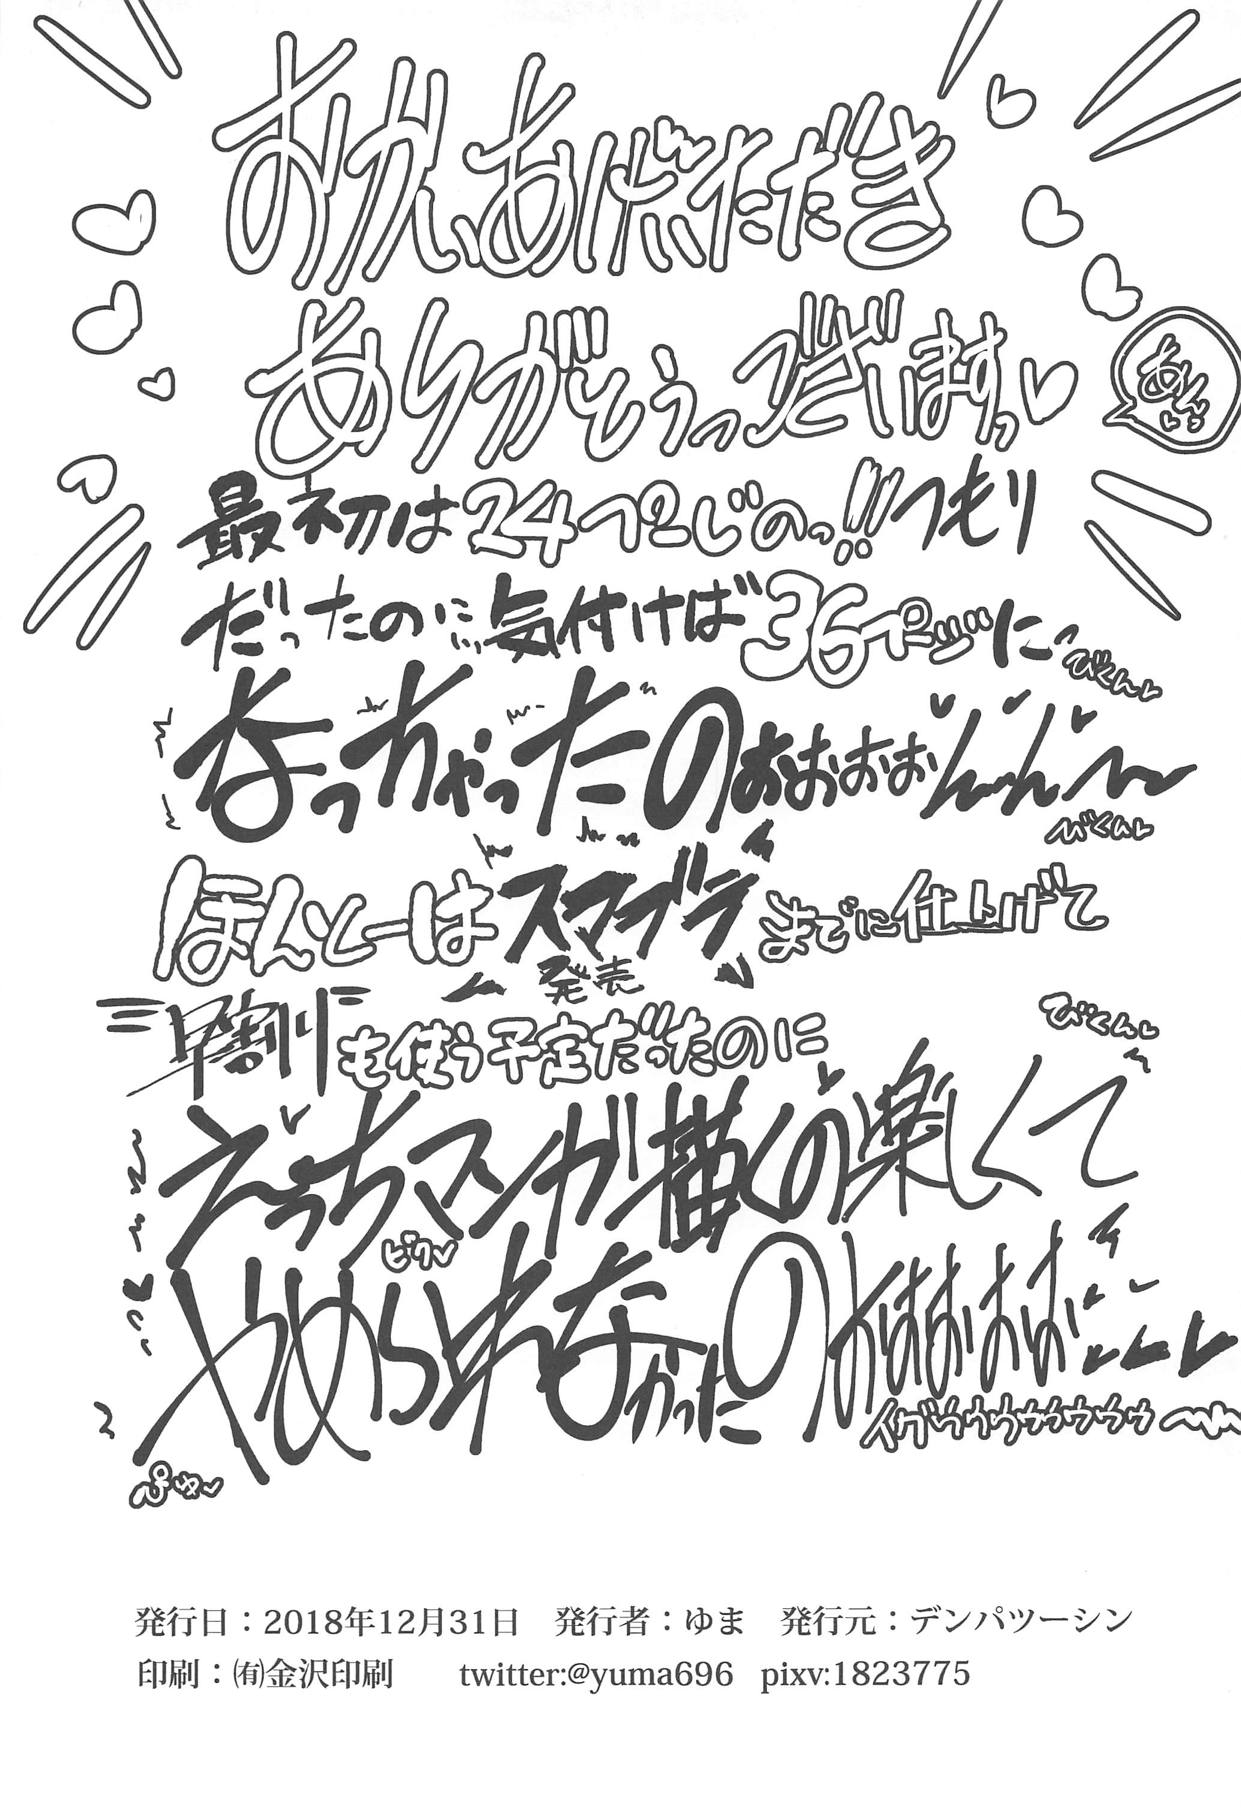 おかいあげいただき
ありがとうっございますっ♡
あんっ
最初は24ページのっ!!つもり
だったのに…気付けば36ページに
びくんっ♡
なっちゃったのぉぉぉぉんんん〜
びくんっ♡
ほんとーはスマブラ発売までに仕上げて
早割りも使う予定だったのに
びくんっ♡
えっちマンガ描くの楽しくて
ビクッ♡
やめられなかったのぉほぉぉぉ
イグゥゥゥゥゥゥゥゥ
ぴゅっ♡
発行日：2018年12月31日　発行者：ゆま　発行元：デンパツーシン
印刷：㈲金沢印刷　twitter:@yuma696　pixv:1823775